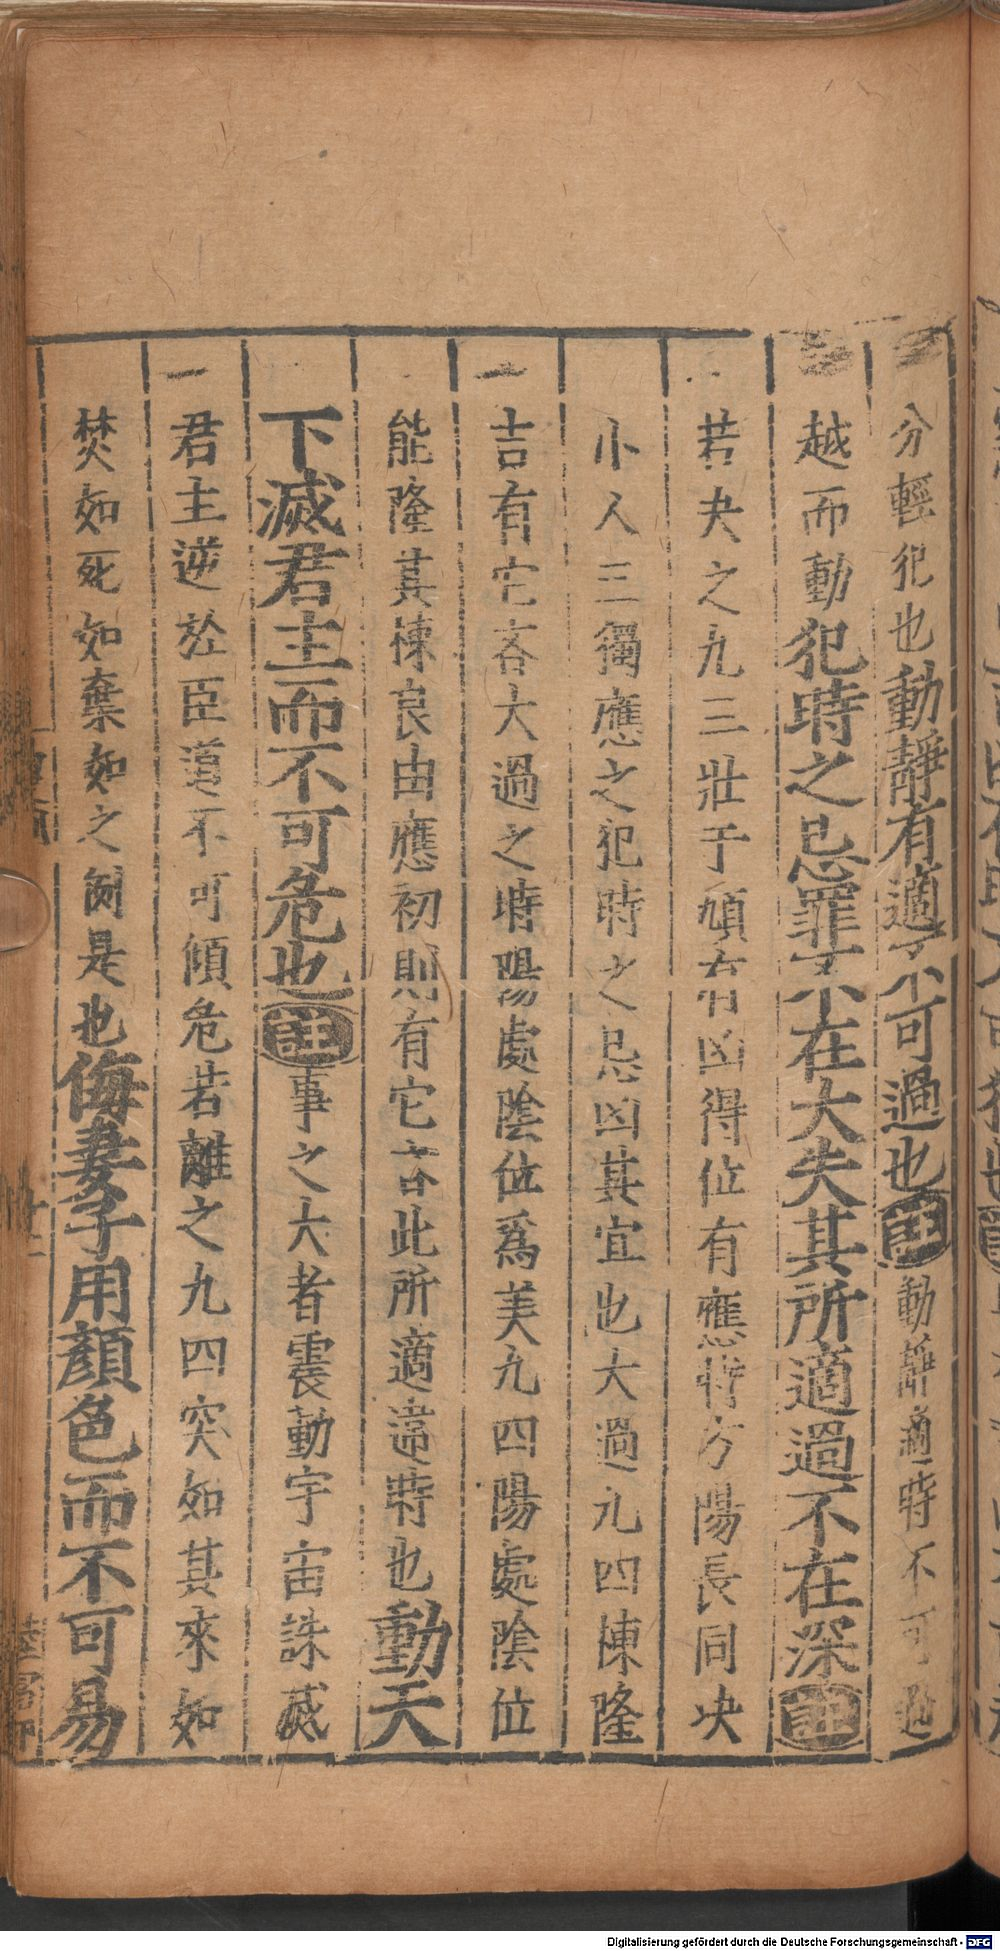 分輕犯也動靜有適不可過也註動靜適時不可過
越而動犯時之忌罪不在大失其所適過不在深註
若夬之九三壯于頄有凶得位有應時方陽長同決
小人三獨應之犯時之忌凶其宜也大過九四棟隆
吉有它吝大過之時陽處陰位爲美九四陽處陰位
能隆其棟良由應初則有它吝此所適違時也動天
下滅君主而不可危也註事之大者震動宇宙誅滅
君主逆於臣道不可傾危若離之九四突如其來如
焚如死如棄如之例是也侮妻子用顏色而不可易
Digitalisierung gefördert durch die Deutsche Forschungsgemeinschaft - DFG